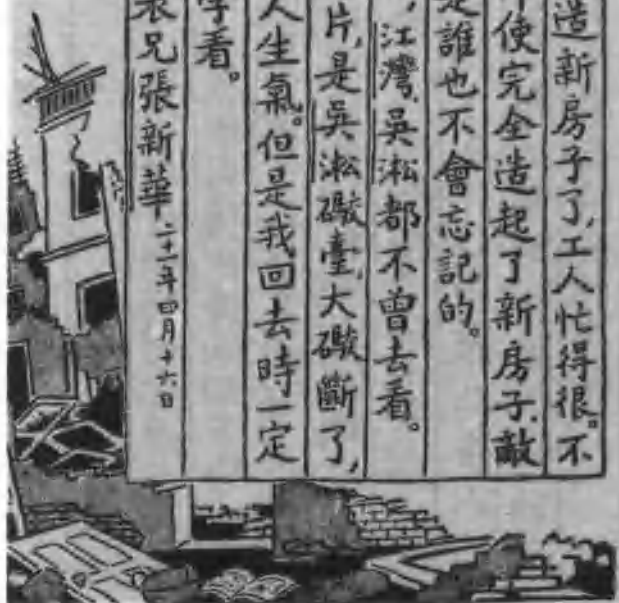 造新房子了,工人忙得很。不
使完全造起了新房子,敵
是誰也不會忘記的。
,江灣,吳淞都不曾去看。
片,是吳淞礮臺,大礮斷了,
人生氣。但是我回去時一定
看。
表兄張新華 二十一年四月十六日